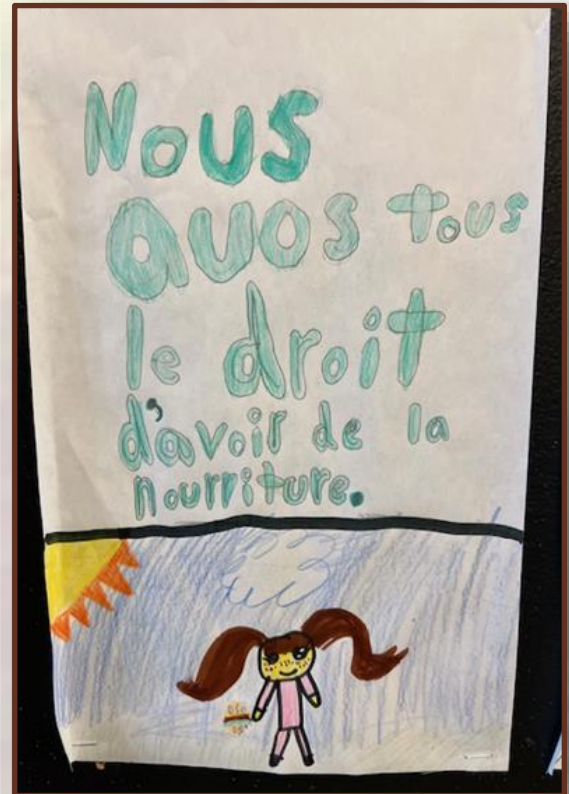 Nous
avos tous
le droit
d'avoir de la
nourriture.